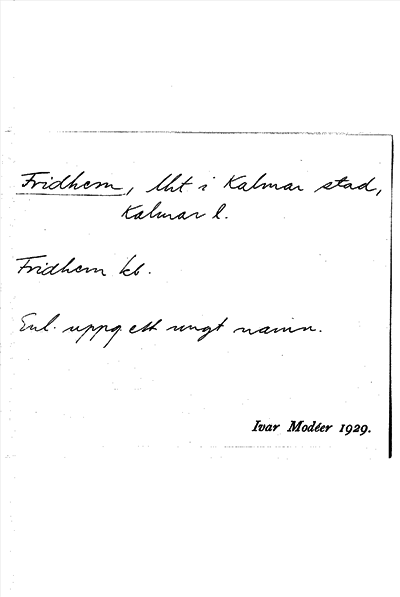 Fridhem, lht i Kalmar stad,
Kalmar l.
Fridhem kb.
Enl. uppg ett ungt namn.
Ivar Modéer 1929.